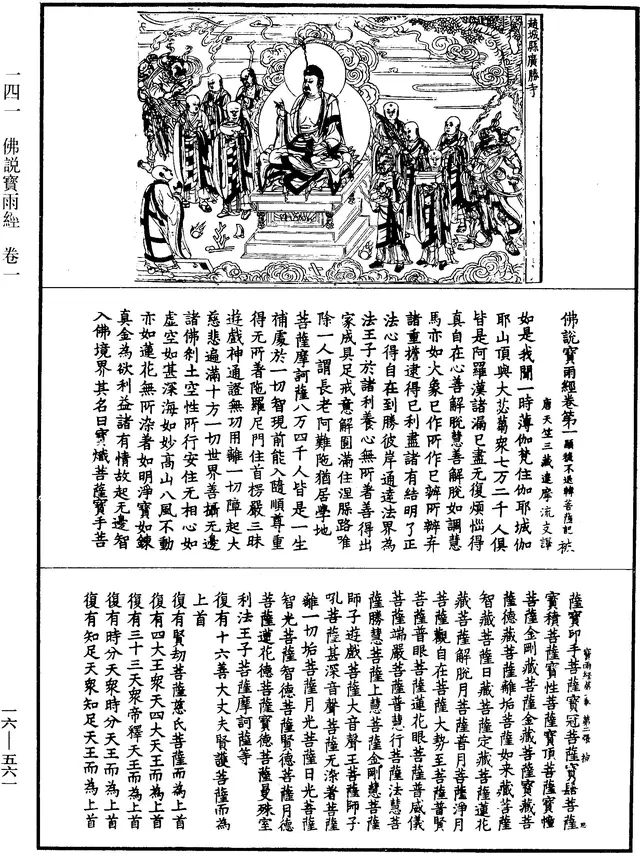 一四一 佛說寶雨經 卷一
一六—五六一
趙城縣廣勝寺
佛說寶雨經卷第一 顯授不退轉菩薩記
唐天竺三藏達摩流支譯
如是我聞一時薄伽梵住伽耶城伽
耶山頂與大苾蒭衆七万二千人俱
皆是阿羅漢諸漏已盡无復煩惱得
真自在心善解脫慧善解脫如調慧
馬亦如大象已作所作已辦所辦弃
諸重擔逮得已利盡諸有結明了正
法心得自在到勝彼岸通達法界為
法王子於諸利養心無所著善得出
家成具足戒意解圓滿住涅槃路唯
除一人謂長老阿難陁猶居學地
菩薩摩訶薩八万四千人皆是一生
補處於一切智現前能入隨順尊重
得元所著陁羅尼門住首楞嚴三昧
遊戲神通證無功用離一切障起大
慈悲遍滿十方一切世界善攝无邊
諸佛刹土空性所行安住无相心如
虛空如甚深海如妙高山八風不動
亦如蓮花無所染著如明淨寶如鍊
真金為欲利益諸有情故起无邊智
入佛境界其名曰寶熾菩薩寶手菩
寶雨經第一卷 第二張
薩寶印手菩薩寶冠菩薩寶髻菩薩
寶積菩薩寶性菩薩寶頂菩薩寶幢
菩薩金剛藏菩薩金藏菩薩寶藏菩
薩德藏菩薩離垢菩薩如來藏菩薩
智藏菩薩日藏菩薩定藏菩薩蓮花
藏菩薩解脫月菩薩普月菩薩淨月
菩薩觀自在菩薩大勢至菩薩普賢
菩薩普眼菩薩蓮花眼菩薩普威儀
菩薩端嚴菩薩普慧行菩薩法慧菩
薩勝慧菩薩上慧菩薩金剛慧菩薩
師子遊戲菩薩大音聲王菩薩師子
吼菩薩甚深音聲菩薩无染著菩薩
離一切垢菩薩月光菩薩日光菩薩
智光菩薩智德菩薩賢德菩薩月德
菩薩蓮花德菩薩寶德菩薩曼殊室
利法王子菩薩摩訶薩等
復有十六善大丈夫賢護菩薩而為
上首
復有賢劫菩薩慈氏菩薩而為上首
復有四大王衆天四大天王而為上首
復有三十三天衆帝釋天王而為上首
復有時分天衆時分天王而為上首
復有知足天衆知足天王而為上首